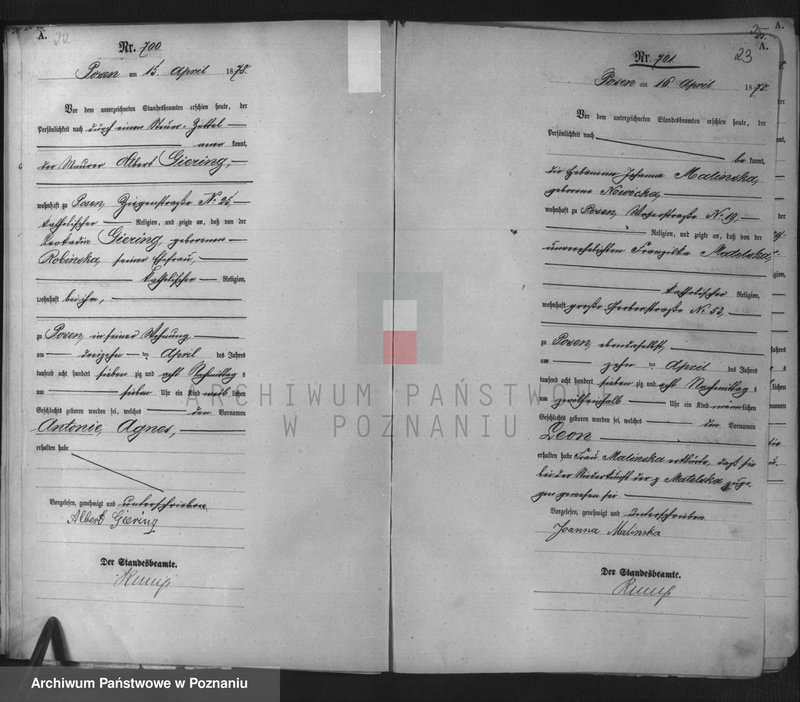 A.
22
Nr. 700
Posen am 15 April 1878.
Vor dem unterzeichneten Standesbeamten erschien heute, der
Persönlichkeit nach durch einen Steuer-Zettel
kannt,
der Maurer Albert Giering,
wohnhaft zu Posen, Ziegenstraße No 25
katholischer Religion, und zeigte an, daß von der
Leokadia Giering geborenen
Robinska, seiner Ehefrau,
katholischer Religion,
wohnhaft bei ihm,
zu Posen, in seiner Wohnung
am dreizehn ten April des Jahres
tausend acht hundert sieben zig und acht Nachmittag s
um sieben Uhr ein Kind weib lichen
Geschlechts geboren worden sei, welches den Vornamen
Antonie, Agnes,
erhalten habe
Vorgelesen, genehmigt und unterschrieben
Albert Giering
Der Standesbeamte.
A.
23
Nr. 701
Posen am 16 April 1878.
Vor dem unterzeichneten Standesbeamten erschien heute, der
Persönlichkeit nach
be kannt,
die Hebamme Johanna Malinska,
geborene Nowicka
wohnhaft zu Posen, No 19,
Religion, und zeigte an, daß von der
unverehelichten Franziska Matelska
katholischer Religion,
wohnhaft große Gerberstraße No 52,
zu Posen, ebendaselbst,
am zehn ten April des Jahres
tausend acht hundert sieben zig und acht Nachmittag s
um zwölfeinhalb Uhr ein Kind männ lichen
Geschlechts geboren worden sei, welches den Vornamen
Leon
erhalten habe Frau Malinska erklärte, daß sie
bei der Niederkunft der Matelska zuge-
gen gewesen sei
Vorgelesen, genehmigt und unterschrieben
Joanna Malinska
Der Standesbeamte.
ARCHIWUM PAŃSTW
W POZNANIU
Archiwum Państwowe w Poznaniu